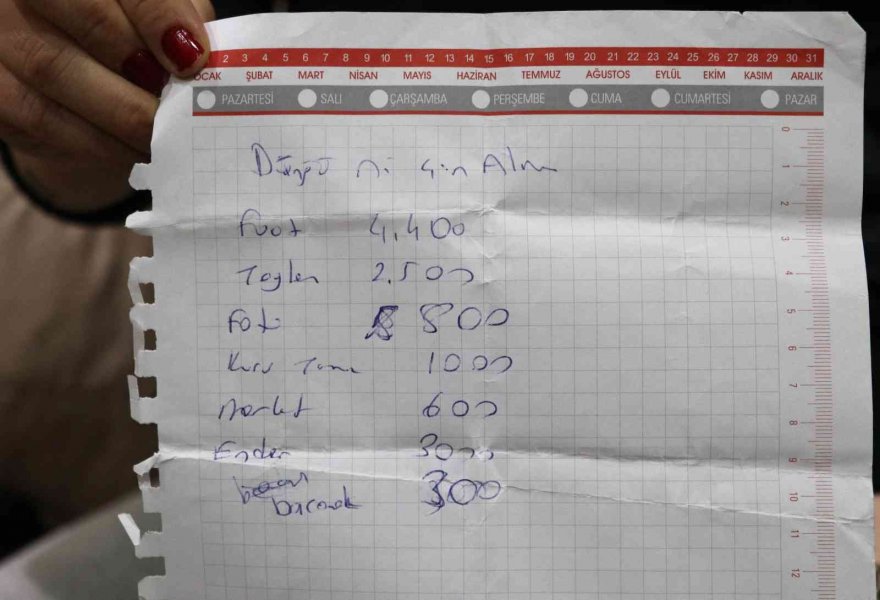 1 2 3 4 5 6 7 8 9 10 11 12 13 14 15 16 17 18 19 20 21 22 23 24 25 26 27 28 29 30 31
OCAK ŞUBAT MART NİSAN MAYIS HAZİRAN TEMMUZ AĞUSTOS EYLÜL EKİM KASIM ARALIK
PAZARTESİ SALI ÇARŞAMBA PERŞEMBE CUMA CUMARTESİ PAZAR
için Alın
Fuat 4.400
Taylan 2.500
Foto 800
Kuru 1000
Market 600
Ender 3000
bacanak 300
0
1
2
3
4
5
6
7
8
9
10
11
12